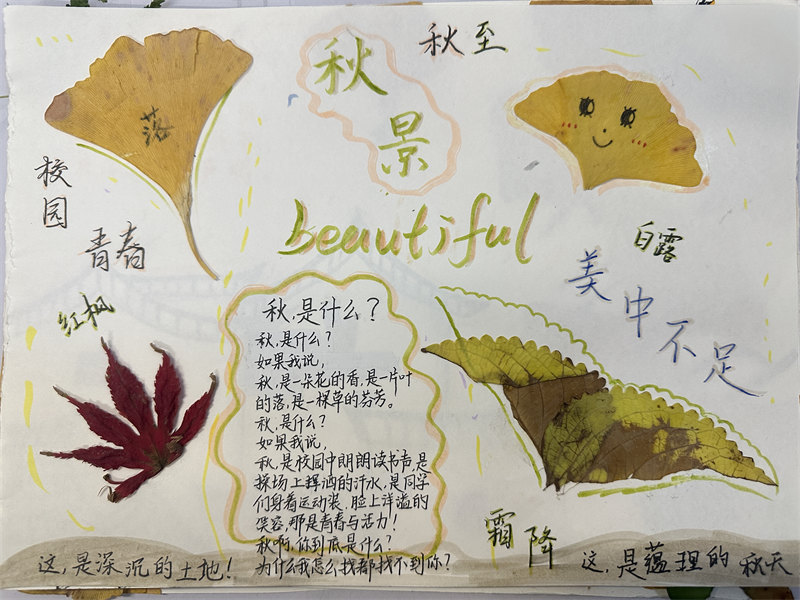 秋至
秋
景
落
校
园
青春
beautiful
白露
美
中
不
足
红枫
秋,是什么?
秋,是什么?
如果我说,
秋,是一朵花的香,是一片叶
的落,是一棵草的芬芳。
秋,是什么?
如果我说,
秋,是校园中朗朗读书声,是
操场上挥洒的汗水,是同学
们身着运动装,脸上洋溢的
笑容,那是青春与活力!
秋啊,你到底是什么?
为什么我怎么找都找不到你?
霜
降
这,是深沉的土地!
这,是蕴理的秋天